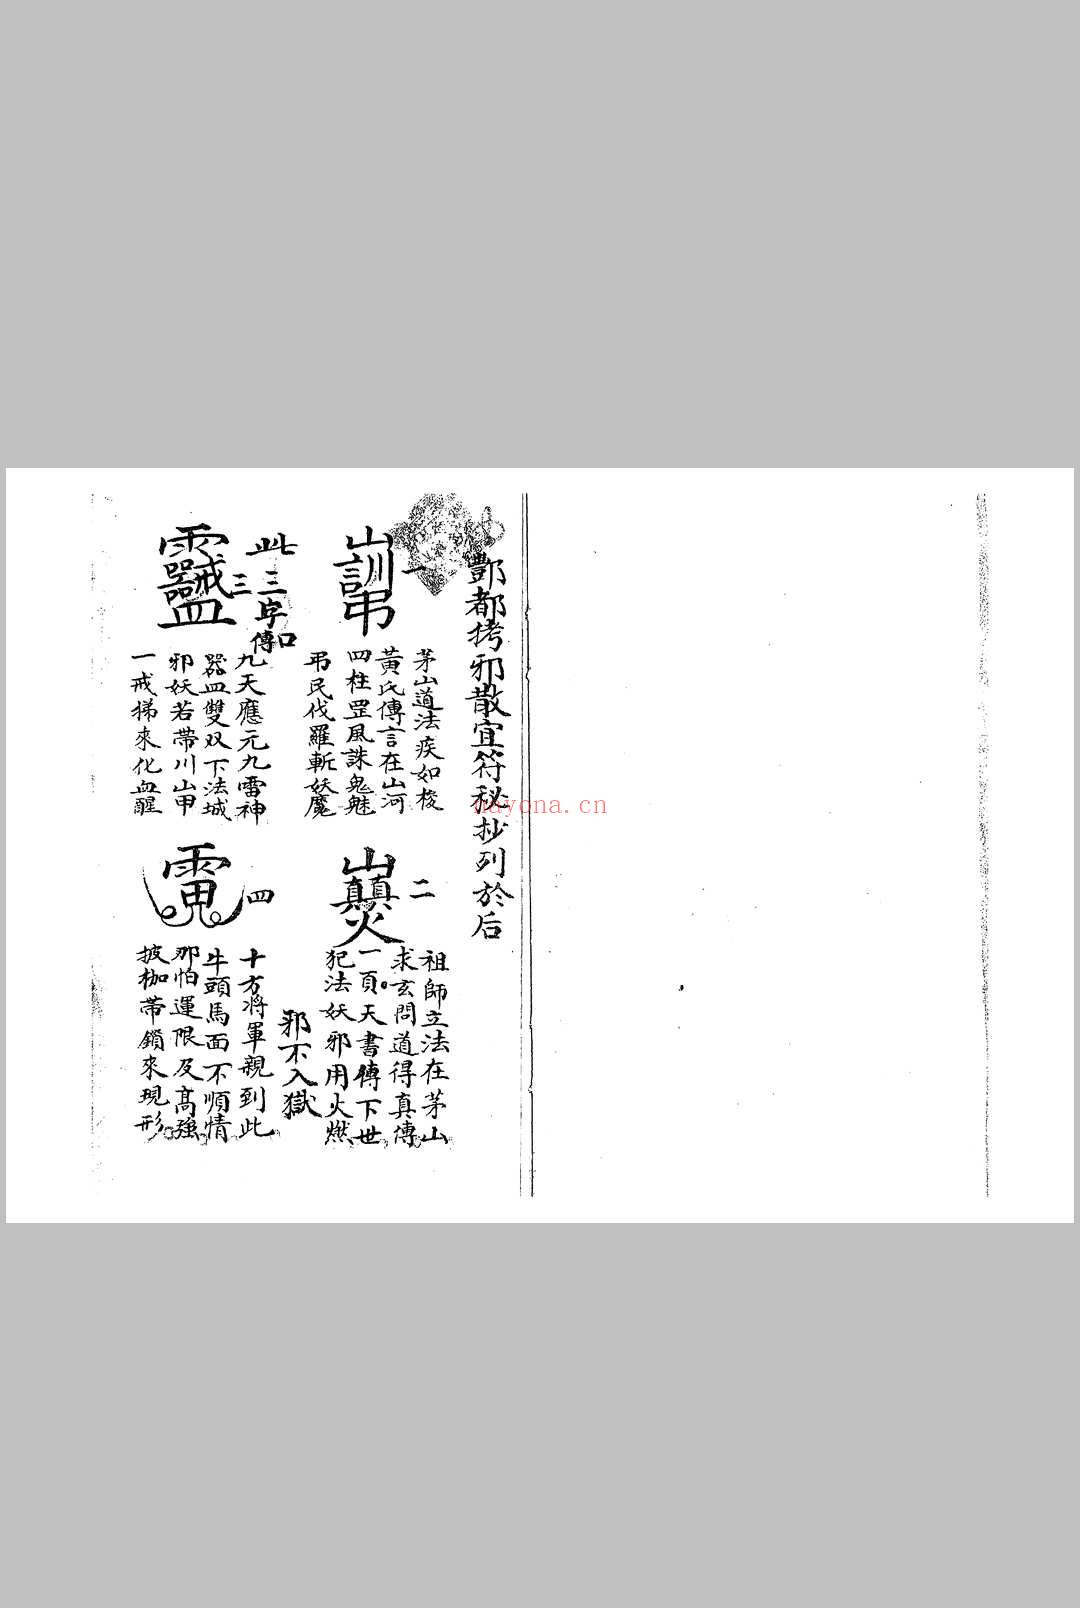 酆都拷邪散宜符秘抄列於后
一
茅山道法疾如梭
黃氏傳言在山河
四柱罡風誅鬼魅
弔民伐羅斬妖魔
二
祖師立法在茅山
求玄問道得真傳
一頁天書傳下世
犯法妖邪用火燃
邪不入獄
此三字口傳
三
九天應元九雷神
器皿雙双下法城
邪妖若帶川山甲
一戒掃來化血醒
四
十方将軍親到此
牛頭馬面不順情
那怕運限及高強
披枷帶鎖來現形
nayona.cn